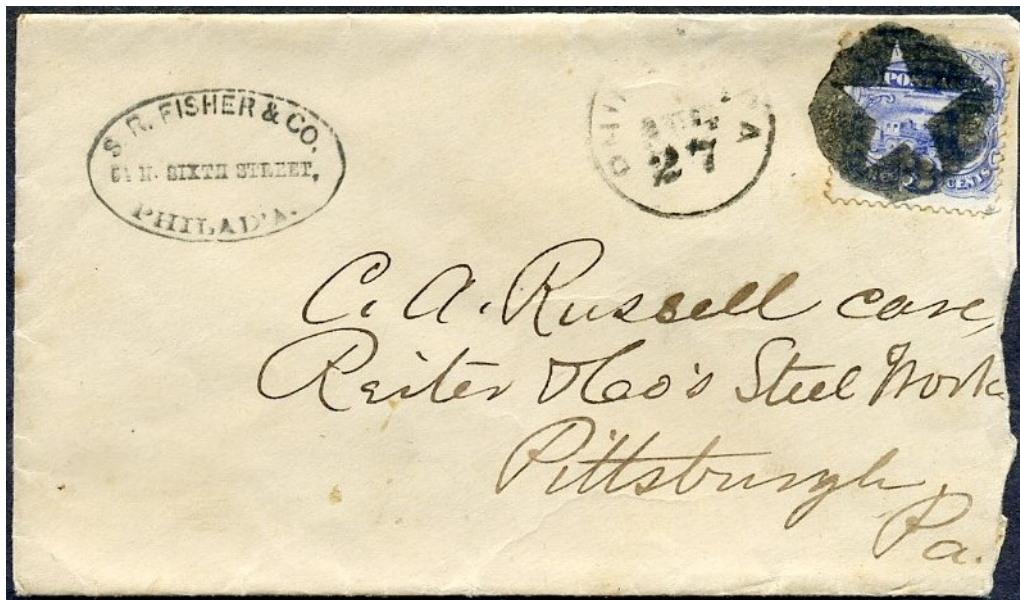 S. R. FISHER & CO.
N. SIXTH STREET,
PHILAD'A.
27
POSTAGE
CENTS
C. A. Russell care,
Reiter & Co's Steel Work
Pittsburgh,
Pa.